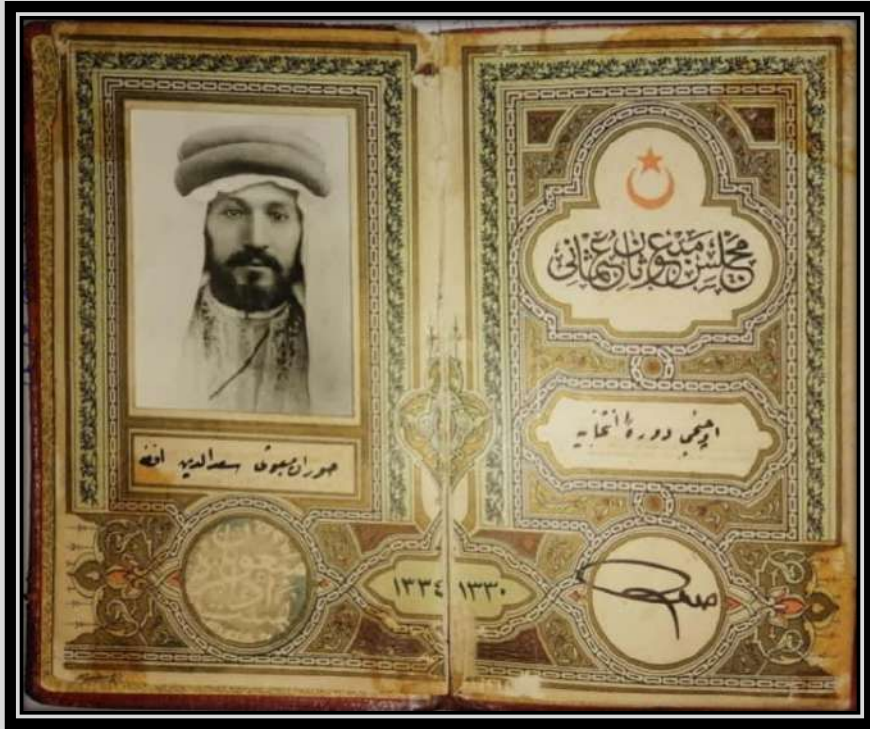 مجلس مبعوثان عثمانی
اوچنجی دورهٔ انتخابیه
حوران مبعوثی سعدالدین افندی
١٣٣٠
١٣٣٤